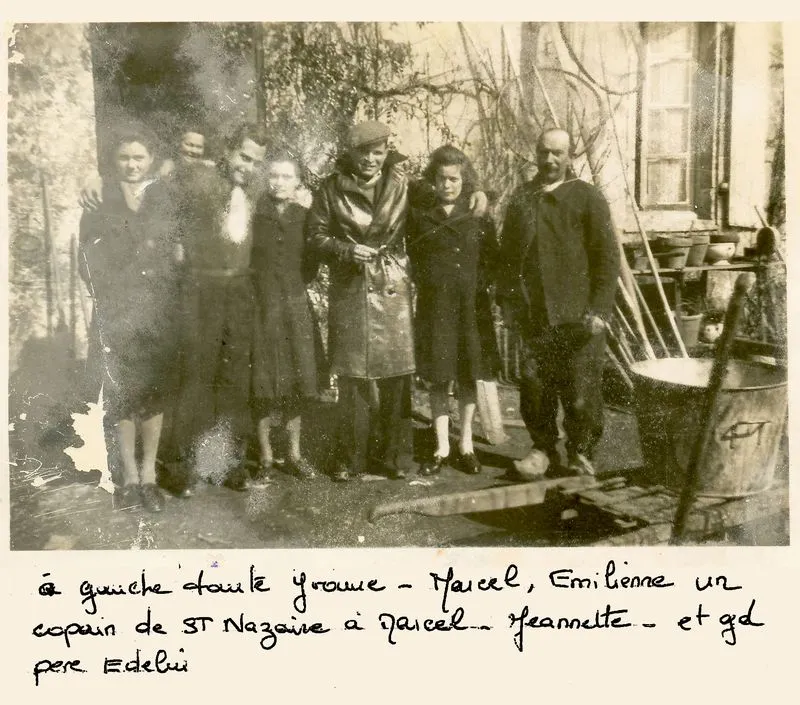 à gauche tante Yvonne - Marcel, Emilienne un
copain de ST Nazaire à Marcel - Jeannette - et gd
pere